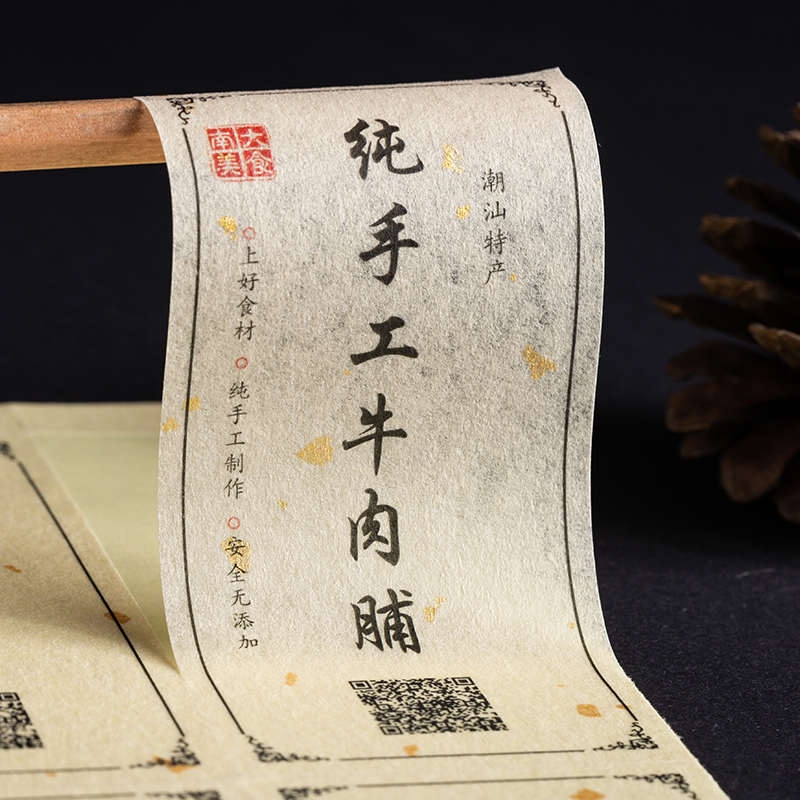 潮汕特产
纯手工牛肉脯
南大
美食
上好食材
纯手工制作
安全无添加